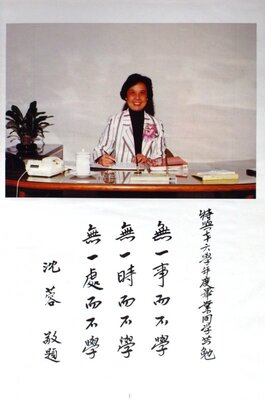 特與六學年度畢業同學共勉
無一事而不學
無一時而不學
無一處而不學
沈蓉敬題